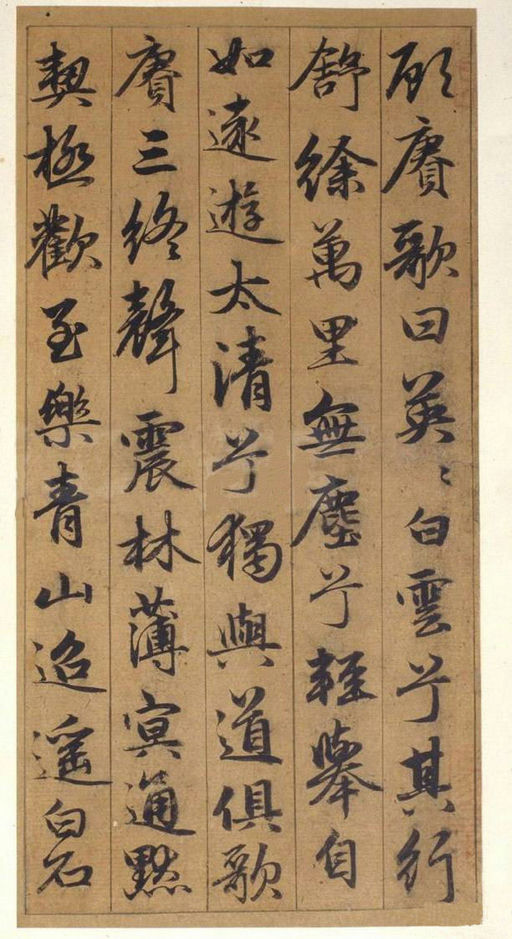 願賡歌曰英〻白雲兮其行
舒徐萬里無塵兮輕舉自
如遠遊太清兮獨與道俱歌
賡三終聲震林薄冥通默
契極歡至樂青山迢遥白石